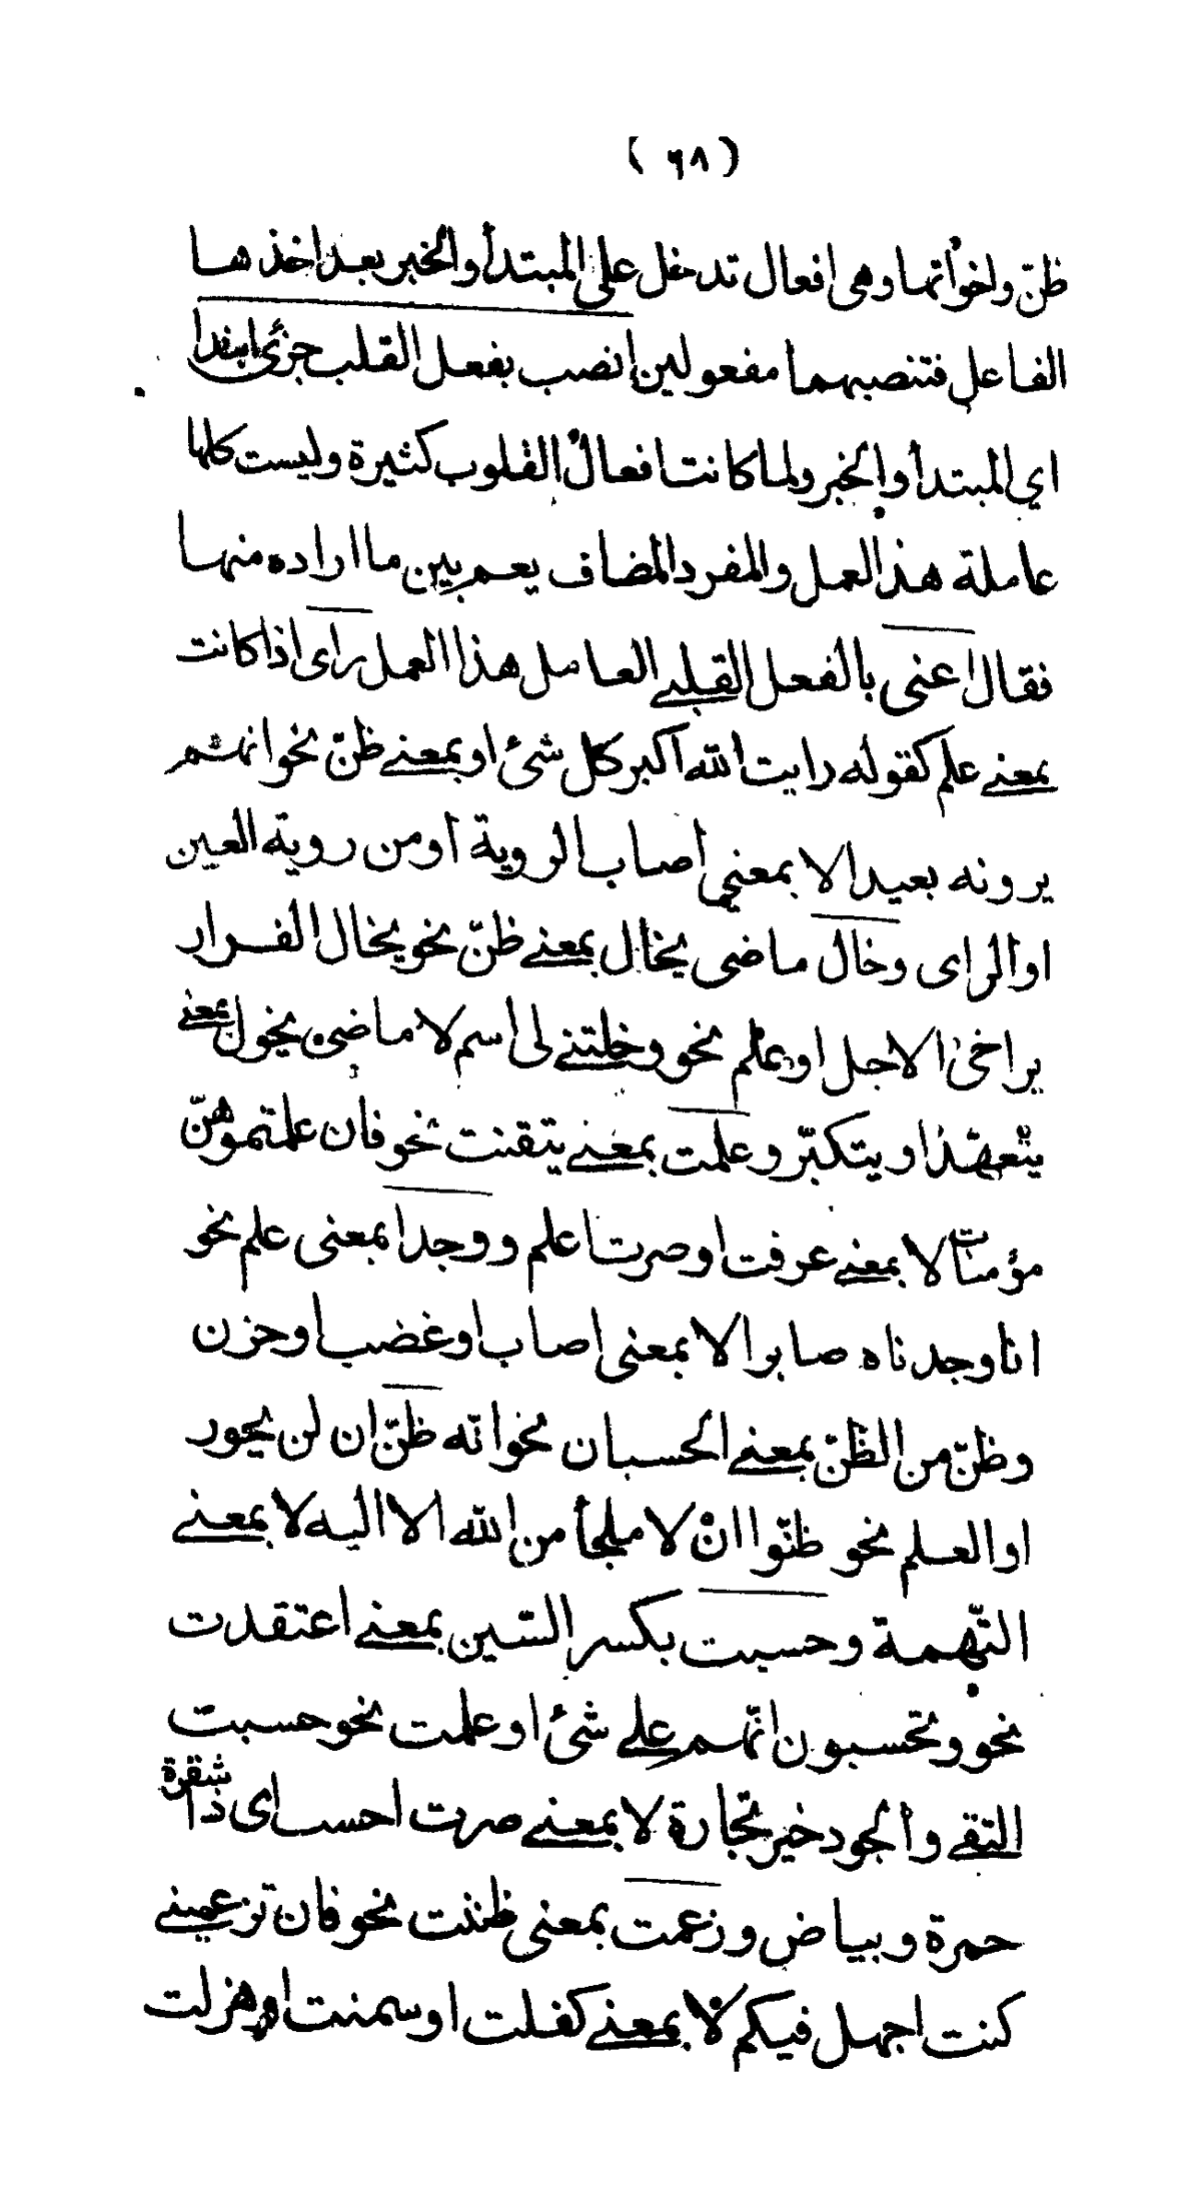 ( ٦٨ )
ظنّ واخواتها وهى افعال تدخل على المبتدأ والخبر بعد اخذها
الفاعل فتنصبهما مفعولين انصب بفعل القلب جزئ ابتدا
اي المبتدأ والخبر ولما كانت افعال القلوب كثيرة وليست كلها
عاملة هذا العمل والمفرد المضاف يعم بين ما اراده منها
فقال اعنى بالفعل القلبے العامل هذا العمل راى اذا كانت
بمعنے علم كقوله رايت الله اكبر كل شئ او بمعنے ظنّ نحو انهم
يرونه بعيدا لا بمعنى اصاب الروية أو من روية العين
او الراى وخال ماضى يخال بمعنے ظنّ نحو يخال الفرار
يراخى الاجل او علم نحو وخلتنے لى اسم لا ماضى يخول بمعنے
يتعهّد او يتكبّر وعلمت بمعنے يتقنت نحو فان علمتموهنّ
مؤمنات لا بمعنے عرفت او صرت اعلم ووجد بمعنى علم نحو
انا وجدناه صابرا لا بمعنى اصاب او غضب او حزن
وظنّ من الظنّ بمعنے الحسبان نحو انّه ظنّ ان لن يحور
او العلم نحو ظنّوا ان لا ملجأ من الله الا اليه لا بمعنے
التّهمة وحسبت بكسر السّين بمعنے اعتقدت
نحو وتحسبون انّهم علے شئ او علمت نحو حسبت
التقے والجود خير تجارة لا بمعنے صرت احسب اى ذا شقرة
حمرة وبياض وزعمت بمعنى ظننت نحو فان تزعمينے
كنت اجهل فيكم لا بمعنے كفلت او سمنت او هزلت